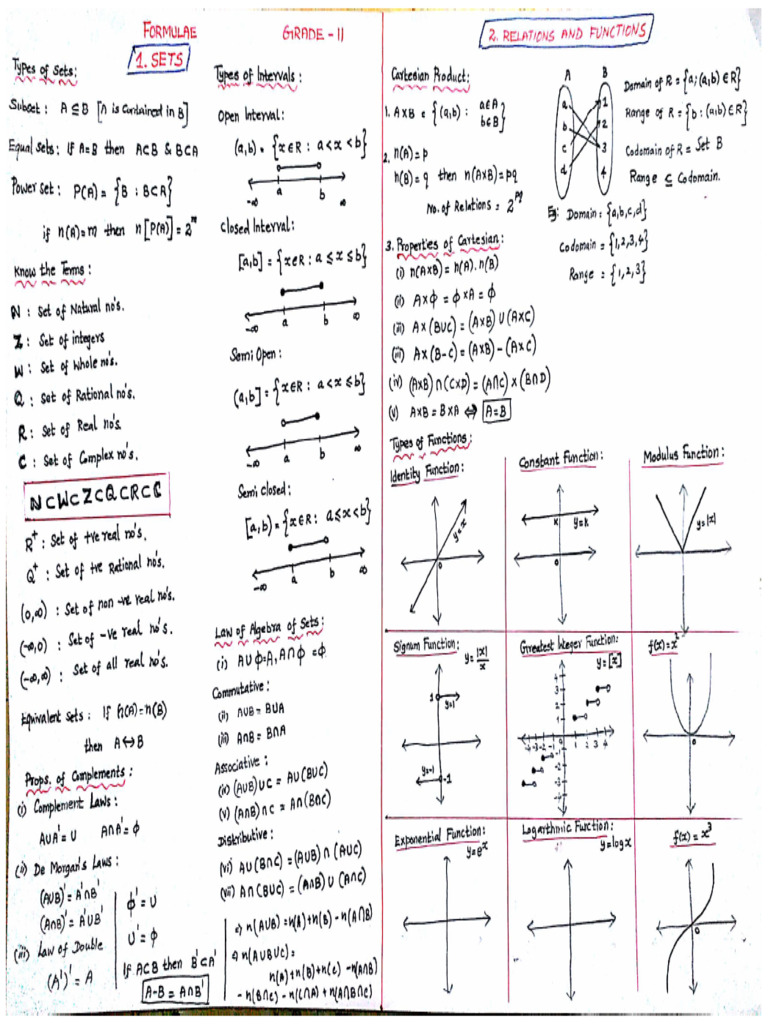 FORMULAE GRADE - 11
1. SETS
Types of Sets:
Subset: A ⊆ B [A is Contained in B]
Equal sets: If A=B then A⊂B & B⊂A
Power set: P(A) = {B : B⊂A}
if n(A)=m then n[P(A)] = 2^m
Know the Terms:
N : Set of Natural no's.
Z : Set of integers
W : Set of Whole no's.
Q : Set of Rational no's.
R : Set of Real no's.
C : Set of Complex no's.
N⊂W⊂Z⊂Q⊂R⊂C
R⁺ : Set of +ve real no's.
Q⁺ : Set of +ve Rational no's.
(0,∞) : Set of non -ve real no's.
(-∞,0) : Set of -ve real no's.
(-∞,∞) : Set of all real no's.
Equivalent sets: If n(A)=n(B)
then A↔B
Props. of Complements:
(i) Complement Laws:
A∪A' = U A∩A' = ϕ
(ii) De Morgan's Laws:
(A∪B)' = A'∩B'
(A∩B)' = A'∪B'
(iii) Law of Double
(A')' = A
ϕ' = U
U' = ϕ
If A⊂B then B'⊂A'
A-B = A∩B'
Types of Intervals:
Open Interval:
(a,b) = {x∈R : a<x<b}
-∞ a b ∞
Closed Interval:
[a,b] = {x∈R : a≤x≤b}
-∞ a b ∞
Semi Open:
(a,b] = {x∈R : a<x≤b}
-∞ a b ∞
Semi Closed:
[a,b) = {x∈R : a≤x<b}
-∞ a b ∞
Law of Algebra of Sets:
(i) A∪ϕ=A, A∩ϕ=ϕ
Commutative:
(ii) A∪B = B∪A
(iii) A∩B = B∩A
Associative:
(iv) (A∪B)∪C = A∪(B∪C)
(v) (A∩B)∩C = A∩(B∩C)
Distributive:
(vi) A∪(B∩C) = (A∪B)∩(A∪C)
(vii) A∩(B∪C) = (A∩B)∪(A∩C)
⇒ n(A∪B) = n(A)+n(B)-n(A∩B)
⇒ n(A∪B∪C) =
n(A)+n(B)+n(C) -n(A∩B)
-n(B∩C) -n(C∩A) +n(A∩B∩C)
2. RELATIONS AND FUNCTIONS
Cartesian Product:
1. A×B = {(a,b) : a∈A
b∈B}
2. n(A)=p
n(B)=q then n(A×B)=pq
No. of Relations = 2^pq
A B
a 1
b 2
c 3
d 4
Domain of R = {a; (a,b)∈R}
Range of R = {b : (a,b)∈R}
Codomain of R = Set B
Range ⊆ Codomain.
Eg: Domain = {a,b,c,d}
Codomain = {1,2,3,4}
Range = {1,2,3}
3. Properties of Cartesian:
(i) n(A×B) = n(A).n(B)
(ii) A×ϕ = ϕ×A = ϕ
(iii) A×(B∪C) = (A×B)∪(A×C)
(iii) A×(B-C) = (A×B)-(A×C)
(iv) (A×B)∩(C×D) = (A∩C)×(B∩D)
(v) A×B = B×A ⇔ A=B
Types of Functions:
Identity Function:
y=x
0
Constant Function:
K y=k
0
Modulus Function:
y=|x|
Signum Function:
y=|x|/x
1 y=1
y=-1 -1
Greatest Integer Function:
y=[x]
4
3
2
1
-4 -3 -2 -1 1 2 3 4
-1
-2
-3
f(x)=x²
0
Exponential Function:
y=e^x
Logarithmic Function:
y=logx
f(x)=x³
0